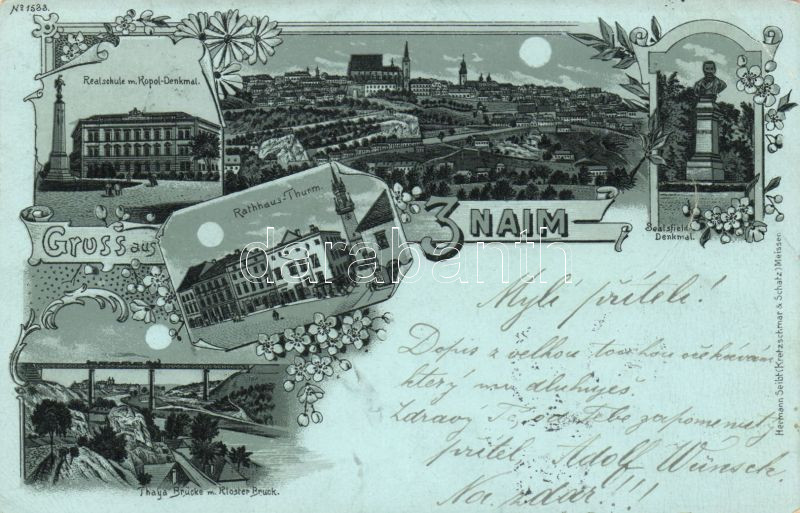 No 1533.
Realschule m. Kopal-Denkmal.
Rathhaus-Thurm.
Sealsfield
Denkmal.
Gruss aus
ZNAIM
darabanth
Thaya Brücke m. Kloster Bruck.
Hermann Seibt (Kretzschmar & Schatz) Meissen
Mylý příteli!
Dopis z velkou touhou očekávám
který mn dluhuješ.
Zdravý Tě od Tebe zapomenutý
přítel Adolf Wünsch.
Na zdar!!!